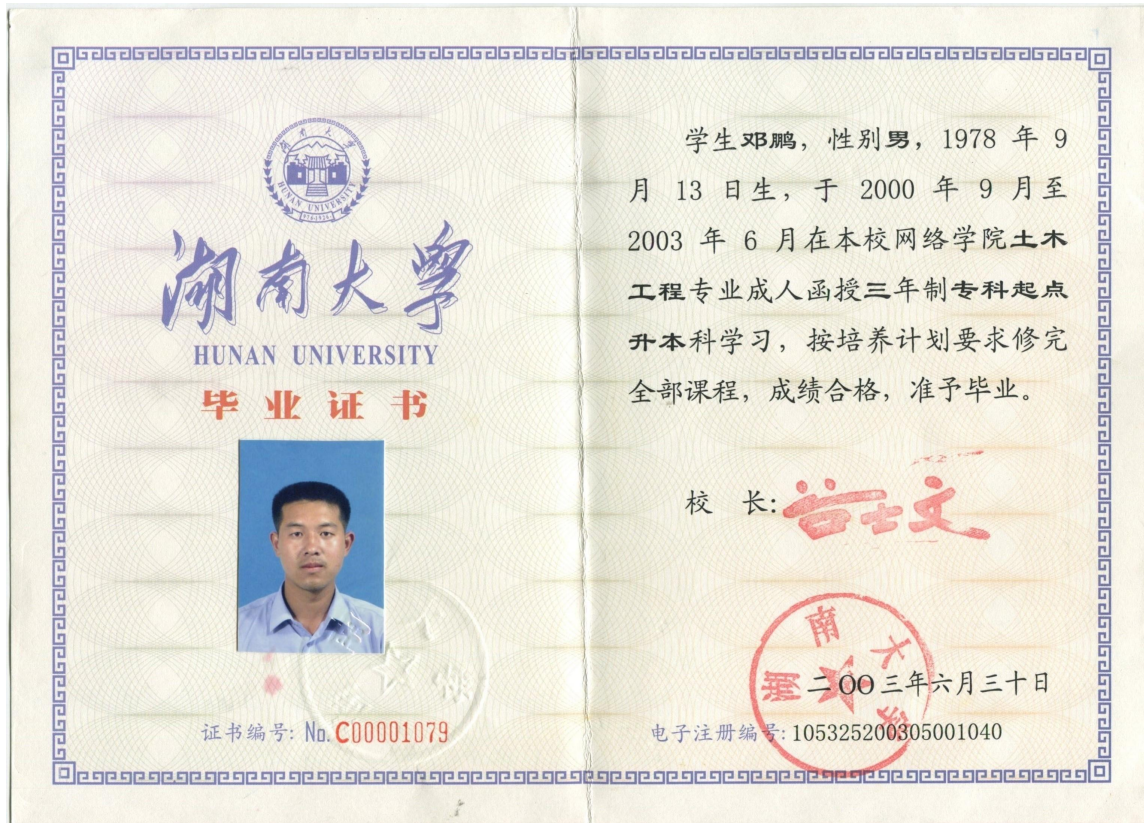 湖南大学
HUNAN UNIVERSITY
湖南大学
HUNAN UNIVERSITY
毕业证书
证书编号: No. C00001079
学生邓鹏，性别男，1978 年 9
月 13 日生，于 2000 年 9 月至
2003 年 6 月在本校网络学院土木
工程专业成人函授三年制专科起点
升本科学习，按培养计划要求修完
全部课程，成绩合格，准予毕业。
校 长: 谷士文
湖南大学
二〇〇三年六月三十日
电子注册编号: 105325200305001040